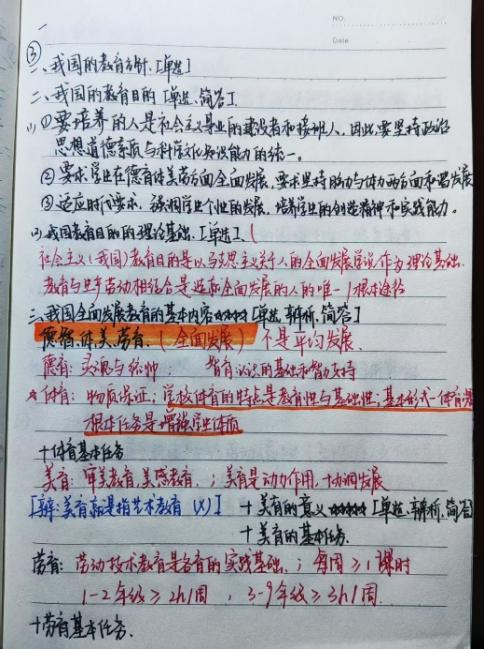 NO.
Date
③
一、我国的教育方针.[单选]
二、我国的教育目的[单选、简答].
(1) ①要培养的人是社会主义事业的建设者和接班人，因此要坚持政治
思想道德素质与科学文化知识能力的统一。
②要求学生在德育体美等方面全面发展，要求坚持脑力与体力两方面和谐发展
③适应时代要求，强调学生个性的发展，培养学生的创造精神和实践能力。
(2)我国教育目的的理论基础.[单选].(
社会主义(我国)教育目的是以马克思主义关于人的全面发展学说作为理论基础.
教育与生产劳动相结合是造就全面发展的人的唯一/根本途径
三、我国全面发展教育的基本内容☆☆☆☆[单选、辨析、简答]
德智、体、美、劳育.(全面发展)不是平均发展.
德育：灵魂与统帅 智育：认识的基础和智力支持
*体育：物质保证；学校体育的特点是教育性与基础性；基本形式-体育课
根本任务是增强学生体质
+体育基本任务
美育：审美教育,美感教育.；美育是动力作用,+协调发展
[辨：美育就是指艺术教育 (×)] +美育的意义☆☆☆☆[单选、辨析、简答]
+美育的基本任务.
劳育：劳动技术教育是各育的实践基础.；每周≥1课时
1-2年级≥2h/周 , 3-9年级≥3h/周.
+劳育基本任务.